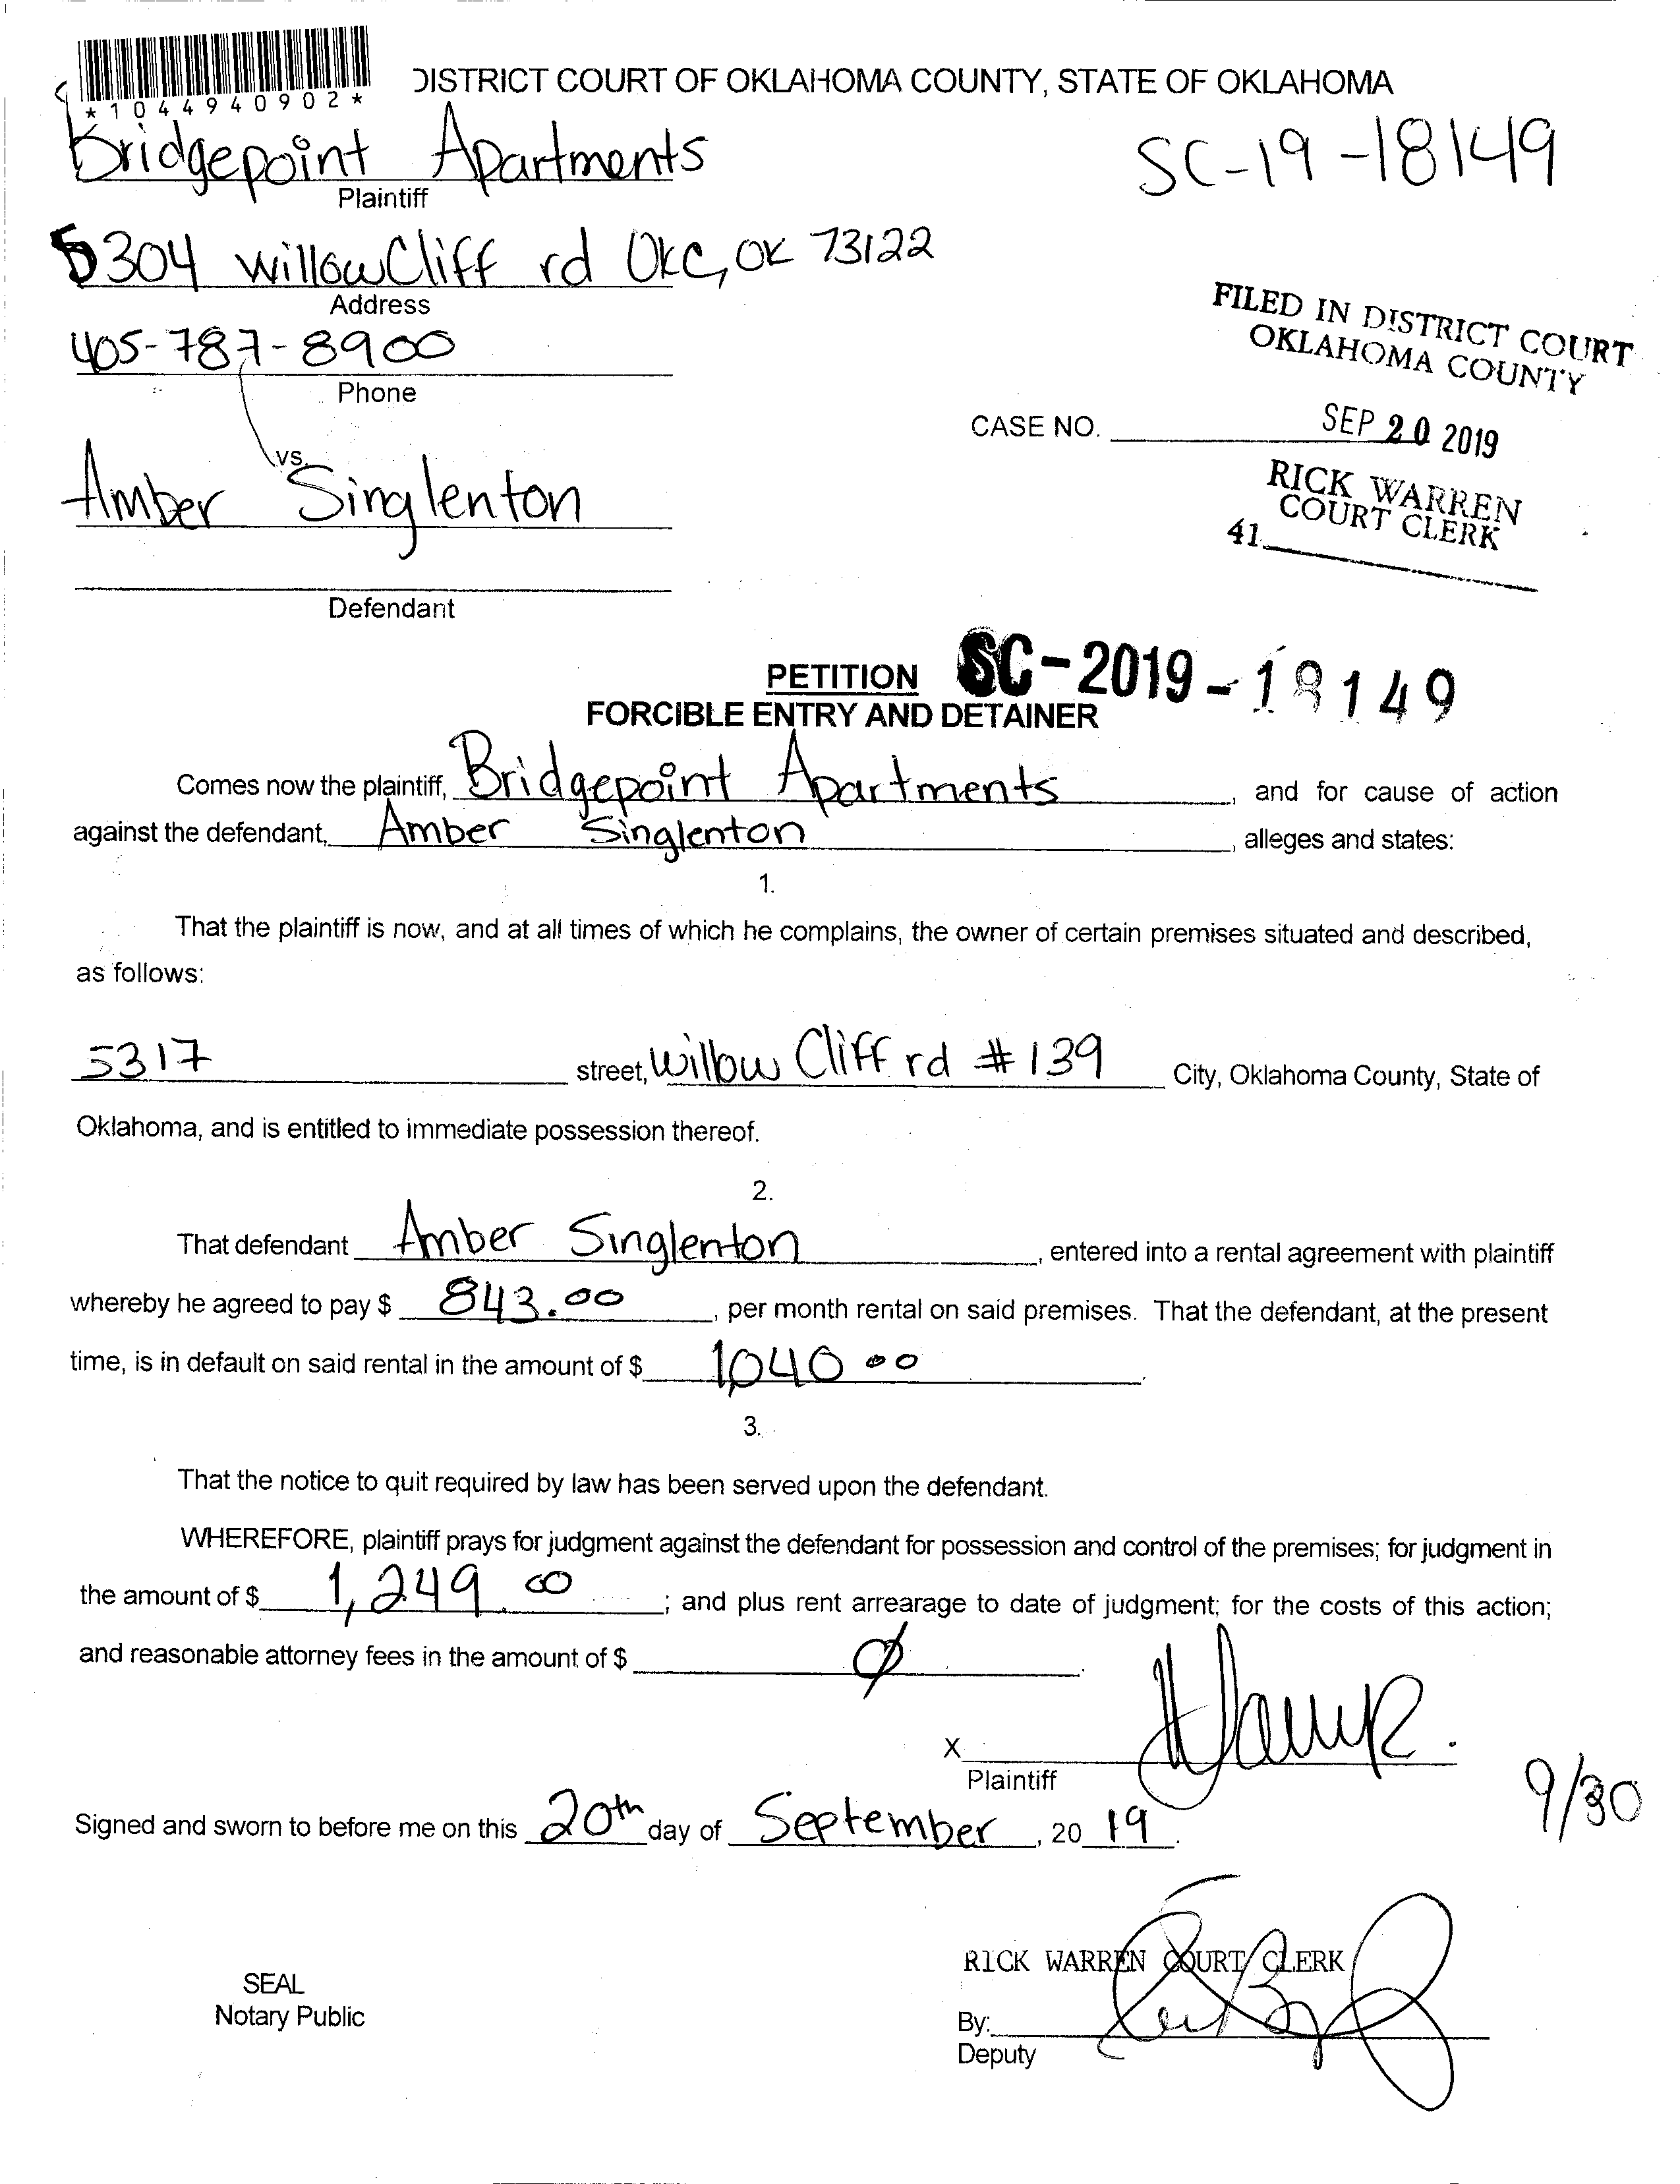 *1044940902*
DISTRICT COURT OF OKLAHOMA COUNTY, STATE OF OKLAHOMA
Bridgepoint Apartments
Plaintiff
SC-19-18149
5304 willow Cliff rd OKC, OK 73122
Address
405-787-8900
Phone
FILED IN DISTRICT COURT
OKLAHOMA COUNTY
CASE NO.
SEP 20 2019
vs.
Amber Singlenton
RICK WARREN
COURT CLERK
41
Defendant
PETITION SC-2019-18149
FORCIBLE ENTRY AND DETAINER
Comes now the plaintiff, Bridgepoint Apartments, and for cause of action
against the defendant, Amber Singlenton, alleges and states:
1.
That the plaintiff is now, and at all times of which he complains, the owner of certain premises situated and described,
as follows:
5317 street, Willow Cliff rd # 139 City, Oklahoma County, State of
Oklahoma, and is entitled to immediate possession thereof.
2.
That defendant Amber Singlenton, entered into a rental agreement with plaintiff
whereby he agreed to pay $ 843.00, per month rental on said premises. That the defendant, at the present
time, is in default on said rental in the amount of $ 1,040 00.
3.
That the notice to quit required by law has been served upon the defendant.
WHEREFORE, plaintiff prays for judgment against the defendant for possession and control of the premises; for judgment in
the amount of $ 1,249.00; and plus rent arrearage to date of judgment; for the costs of this action;
and reasonable attorney fees in the amount of $ Ø.
X
Plaintiff
9/30
Signed and sworn to before me on this 20th day of September, 20 19.
RICK WARREN COURT CLERK
SEAL
Notary Public
By:
Deputy